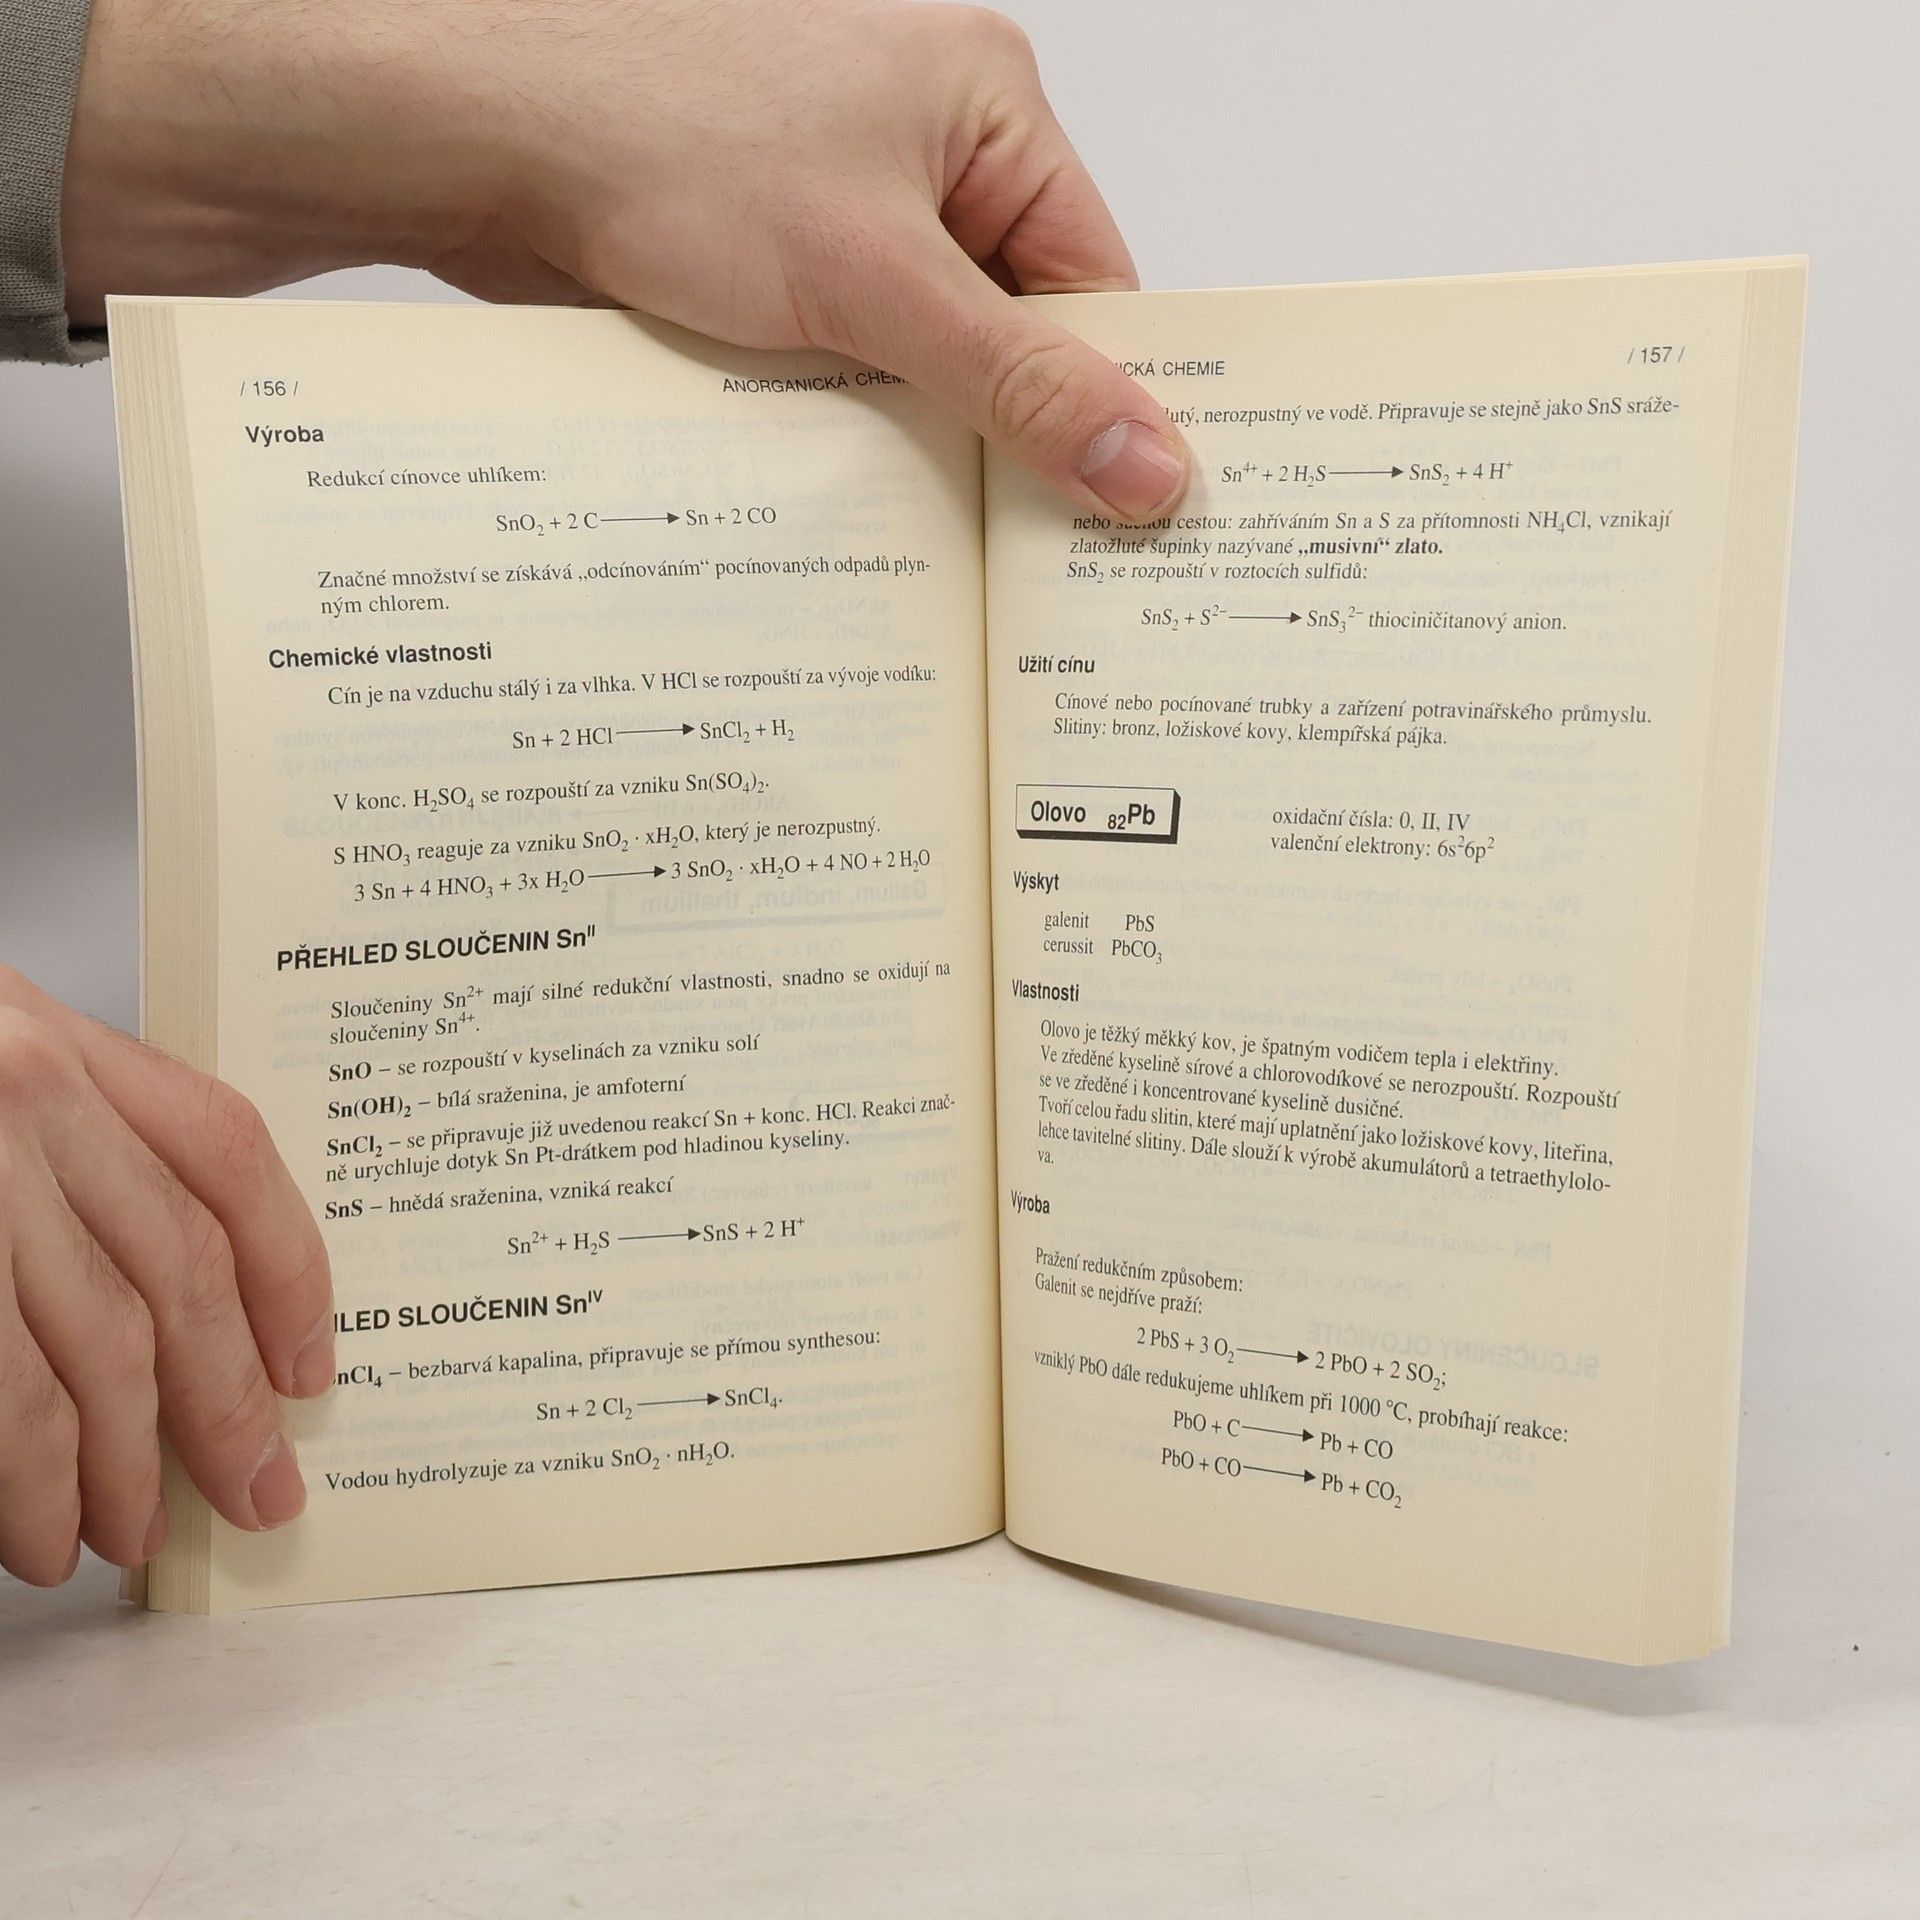 / 156 /
ANORGANICKÁ
Výroba
Redukcí cínovce uhlíkem:
SnO₂ + 2 C ⟶ Sn + 2 CO
Značné množství se získává „odcínováním“ pocínovaných odpadů plyn-
ným chlorem.
Chemické vlastnosti
Cín je na vzduchu stálý i za vlhka. V HCl se rozpouští za vývoje vodíku:
Sn + 2 HCl ⟶ SnCl₂ + H₂
V konc. H₂SO₄ se rozpouští za vzniku Sn(SO₄)₂.
S HNO₃ reaguje za vzniku SnO₂ · xH₂O, který je nerozpustný.
3 Sn + 4 HNO₃ + 3x H₂O ⟶ 3 SnO₂ · xH₂O + 4 NO + 2 H₂O
PŘEHLED SLOUČENIN Snᴵᴵ
Sloučeniny Sn²⁺ mají silné redukční vlastnosti, snadno se oxidují na
sloučeniny Sn⁴⁺.
SnO – se rozpouští v kyselinách za vzniku solí
Sn(OH)₂ – bílá sraženina, je amfoterní
SnCl₂ – se připravuje již uvedenou reakcí Sn + konc. HCl. Reakci znač-
ně urychluje dotyk Sn Pt-drátkem pod hladinou kyseliny.
SnS – hnědá sraženina, vzniká reakcí
Sn²⁺ + H₂S ⟶ SnS + 2 H⁺
SLOUČENIN Snᴵⱽ
nCl₄ – bezbarvá kapalina, připravuje se přímou synthesou:
Sn + 2 Cl₂ ⟶ SnCl₄.
Vodou hydrolyzuje za vzniku SnO₂ · nH₂O.
CHEMIE
/ 157 /
nerozpustný ve vodě. Připravuje se stejně jako SnS sráže-
Sn⁴⁺ + 2 H₂S ⟶ SnS₂ + 4 H⁺
nebo cestou: zahříváním Sn a S za přítomnosti NH₄Cl, vznikají
zlatožluté šupinky nazývané „musivní“ zlato.
SnS₂ se rozpouští v roztocích sulfidů:
SnS₂ + S²⁻ ⟶ SnS₃²⁻ thiociničitanový anion.
Užití cínu
Cínové nebo pocínované trubky a zařízení potravinářského průmyslu.
Slitiny: bronz, ložiskové kovy, klempířská pájka.
Olovo ₈₂Pb
oxidační čísla: 0, II, IV
valenční elektrony: 6s²6p²
Výskyt
galenit PbS
cerussit PbCO₃
Vlastnosti
Olovo je těžký měkký kov, je špatným vodičem tepla i elektřiny.
Ve zředěné kyselině sírové a chlorovodíkové se nerozpouští. Rozpouští
se ve zředěné i koncentrované kyselině dusičné.
Tvoří celou řadu slitin, které mají uplatnění jako ložiskové kovy, liteřina,
lehce tavitelné slitiny. Dále slouží k výrobě akumulátorů a tetraethylolo-
va.
Výroba
Pražení redukčním způsobem:
Galenit se nejdříve praží:
2 PbS + 3 O₂ ⟶ 2 PbO + 2 SO₂;
vzniklý PbO dále redukujeme uhlíkem při 1000 °C, probíhají reakce:
PbO + C ⟶ Pb + CO
PbO + CO ⟶ Pb + CO₂